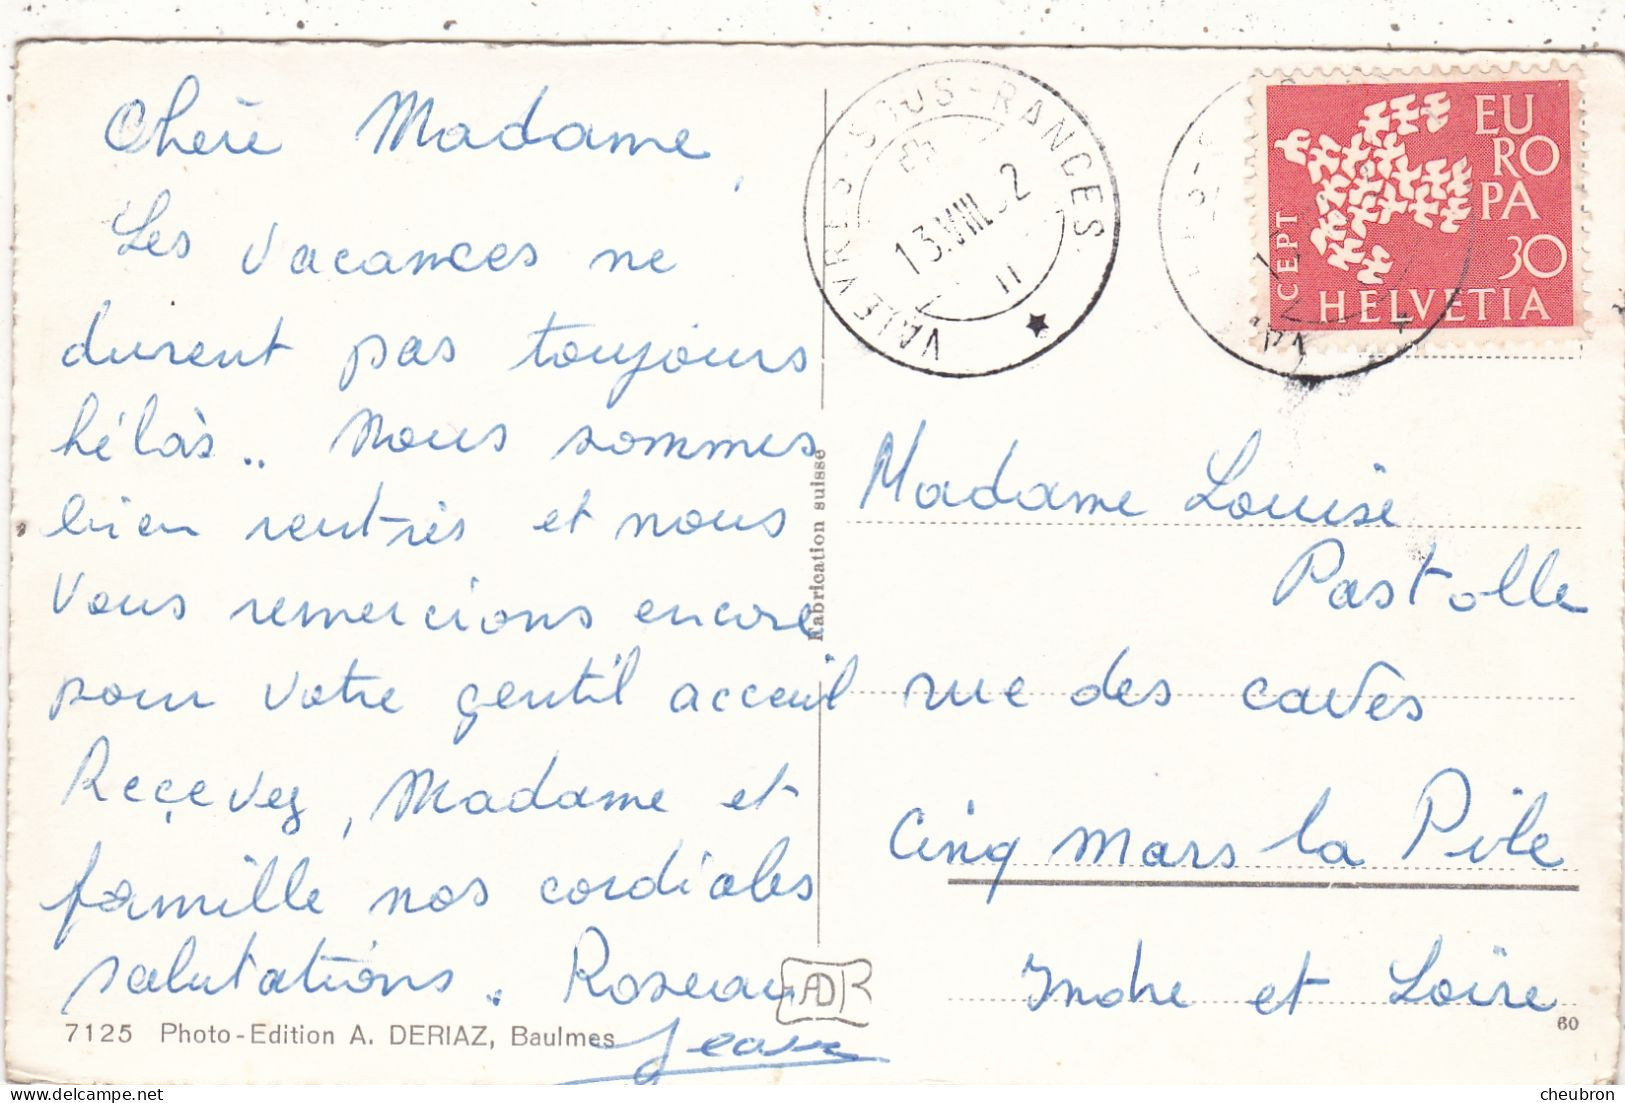 Chère Madame,
Les vacances ne
durent pas toujours
hélàs.. Nous sommes
bien rentrés et nous
Vous remercions encore
pour votre gentil acceuil
Reçevez, Madame et
famille nos cordiales
salutations. Roseau
Jean
7125 Photo-Edition A. DERIAZ, Baulmes
Fabrication suisse
VALEYRES-SOUS-RANCES
13.VIII.62
11
EU
RO
PA
CEPT
30
HELVETIA
Madame Louise
Pastolle
rue des caves
Cinq Mars la Pile
Indre et Loire
60
cheubron